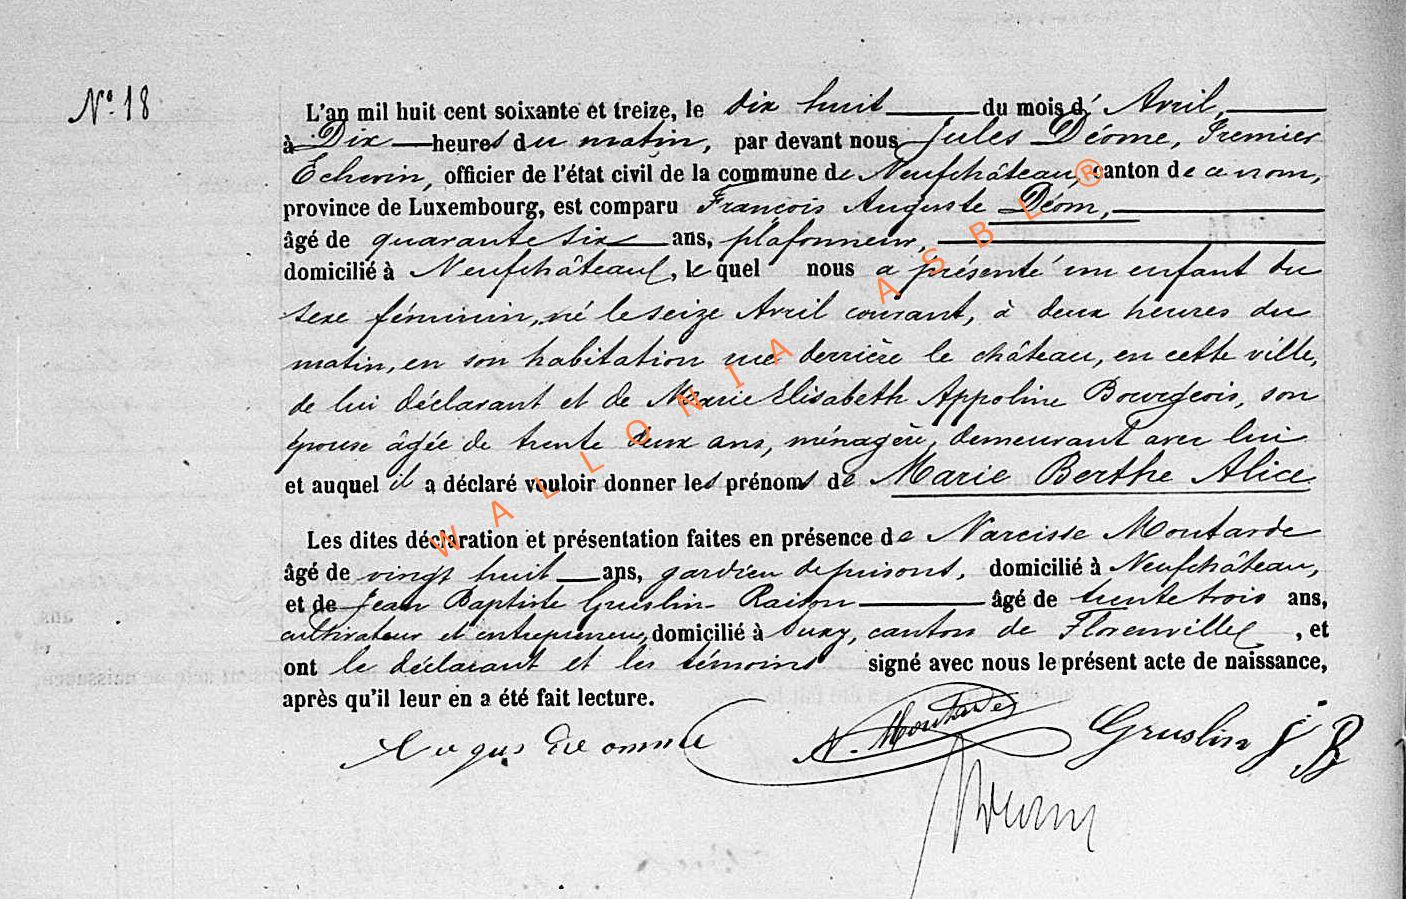 N° 18
L'an mil huit cent soixante et treize, le dix huit du mois d' Avril,
à Dix heures du matin, par devant nous Jules Déome, Premier
Echevin, officier de l'état civil de la commune de Neufchâteau, canton de ce nom,
province de Luxembourg, est comparu François Auguste Déom,
âgé de quarante six ans, plafonneur,
domicilié à Neufchâteau, le quel nous a présenté un enfant du
sexe féminin, né le seize Avril courant, à deux heures du
matin, en son habitation rue derrière le château, en cette ville,
de lui déclarant et de Marie Elisabeth Appoline Bourgeois, son
épouse âgée de trente deux ans, ménagère, demeurant avec lui
et auquel il a déclaré vouloir donner les prénoms de Marie Berthe Alice
Les dites déclaration et présentation faites en présence de Narcisse Moutarde
âgé de vingt huit ans, gardien de prisons, domicilié à Neufchâteau,
et de Jean Baptiste Gruslin-Raison âgé de trente trois ans,
cultivateur et entrepreneur, domicilié à Suxy, canton de Florenville, et
ont le déclarant et les témoins signé avec nous le présent acte de naissance,
après qu'il leur en a été fait lecture.
N. Moutarde Gruslin J B
WALLONIA ASBL ®